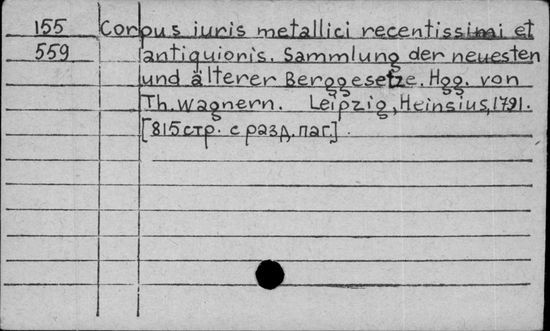 155 Corpus iuris metallici recentissimi et
559 antiquioris. Sammlung der neuesten
und älterer Berggesetze. Hgg. von
Th. Wagnern. Leipzig, Heinsius, 1791.
[815 стр. с разд. паг.].